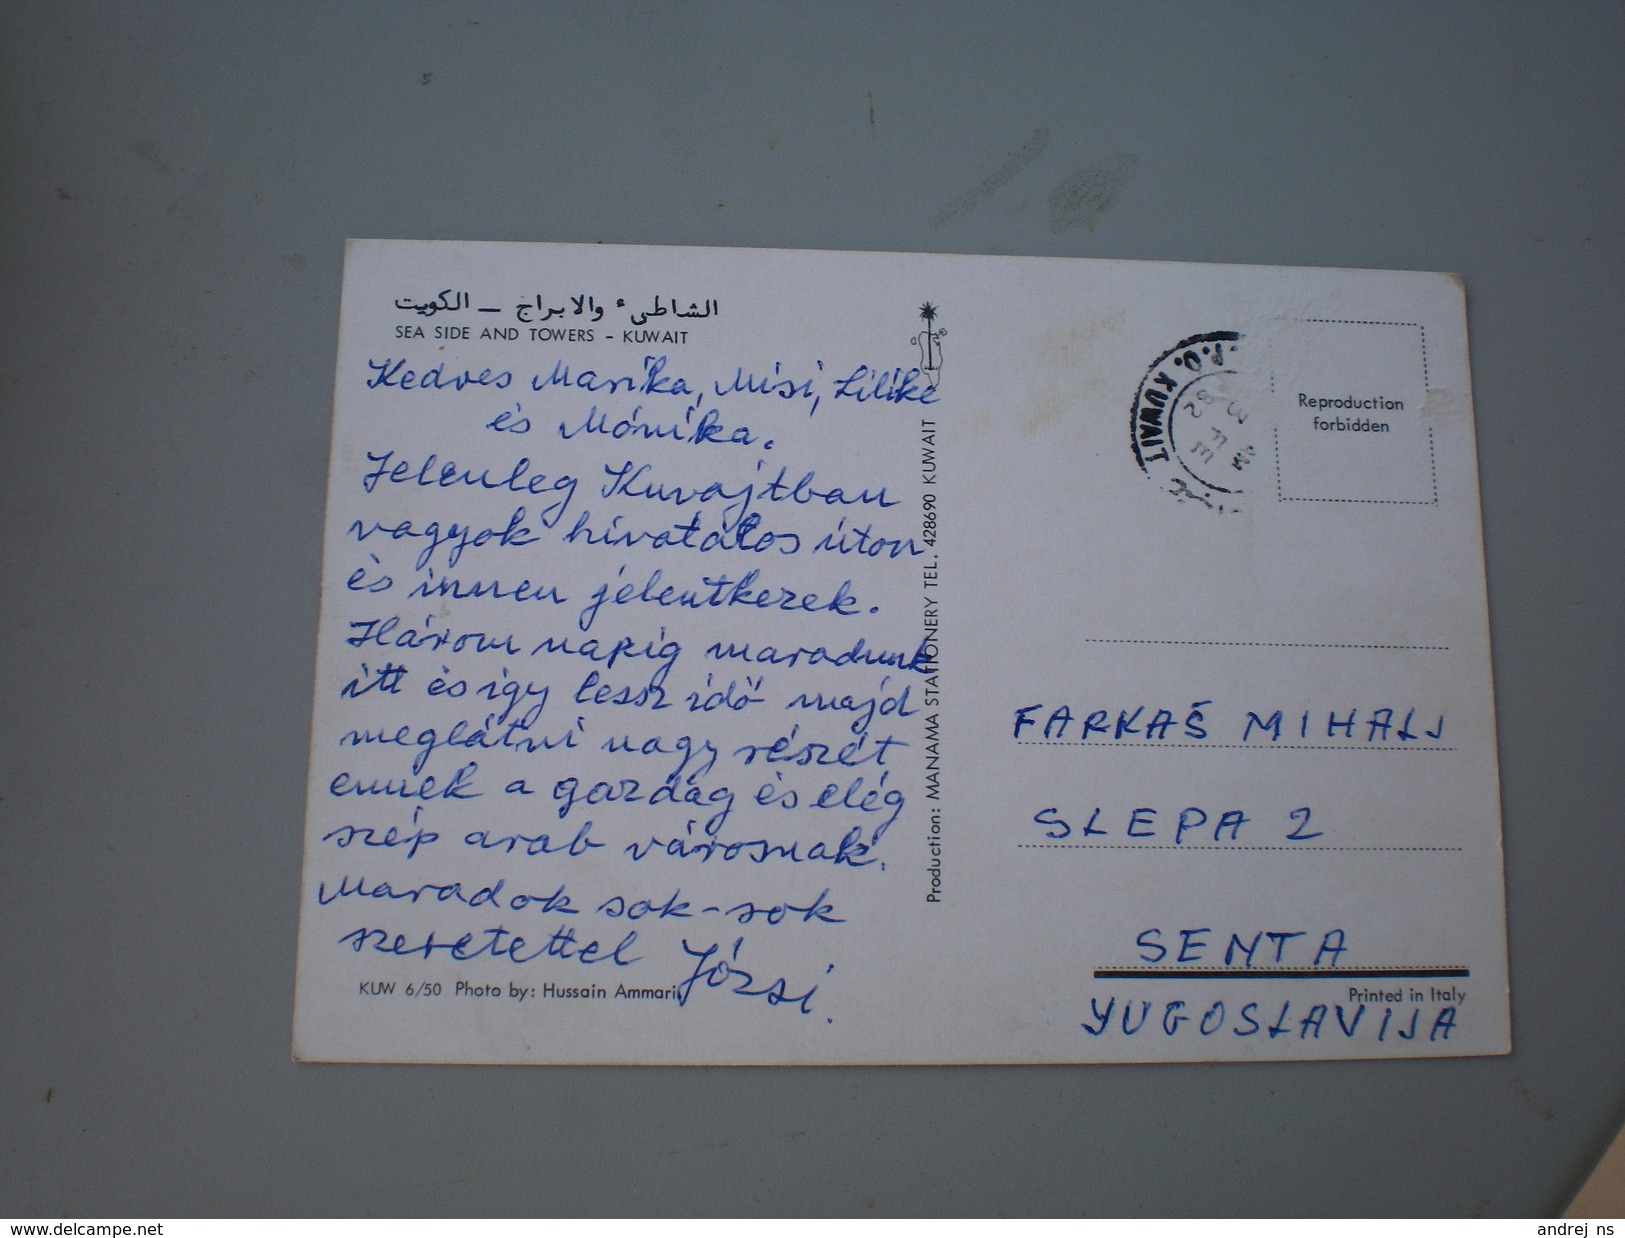 الشاطىء والابراج – الكويت
SEA SIDE AND TOWERS – KUWAIT
Kedves Marika, Misi, Lilike
és Mónika.
Jelenleg Kuvajtban
vagyok hivatalos úton
és innen jelentkezek.
Három napig maradunk
itt és így lessz idő majd
meglátni nagy részét
ennek a gazdag és elég
szép arab városnak.
Maradok sok-sok
szeretettel Józsi.
KUW 6/50 Photo by: Hussain Ammari
Production: MANAMA STATIONERY TEL. 428690 KUWAIT
P.O. KUWAIT
Reproduction
forbidden
FARKAŠ MIHALJ
SLEPA 2
SENTA
Printed in Italy
YUGOSLAVIJA
www.delcampe.net
andrej ns